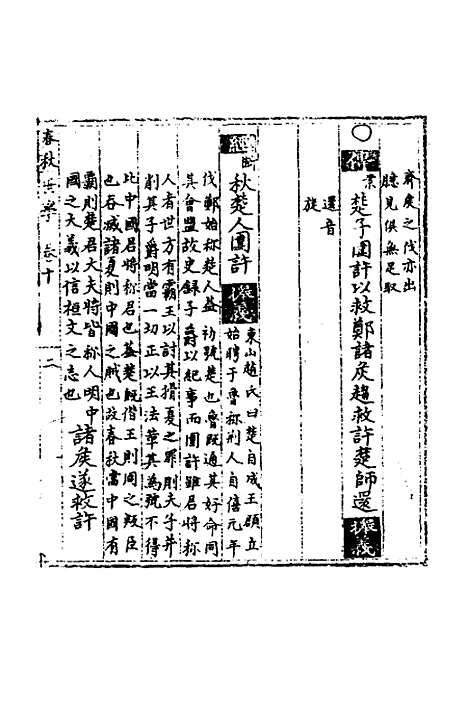 齊度之伐亦出
臆見俱無足取
傳業楚子圍許以救鄭諸侯趨救許楚師還探義
還音
旋
經斷秋楚人圍許探義
東山趙氏曰楚自成王頵立
始聘于魯称荆人自僖元年
伐鄭始称楚人益初號楚也魯既通其好命同
其會盟故史録子爵以紀事而圍許雖君将称
人者世方有霸王以討其猾夏之罪則夫子并
削其子爵明當一切正以王法華其為號不得
比中國君将称君也葢楚既僣王則周之叛臣
也吞滅諸夏則中國之賊也故春秋當中國有
霸則楚君大夫将皆称人明中
國之大義以信桓文之志也
諸侯遂救許
春秋世學 卷十
二